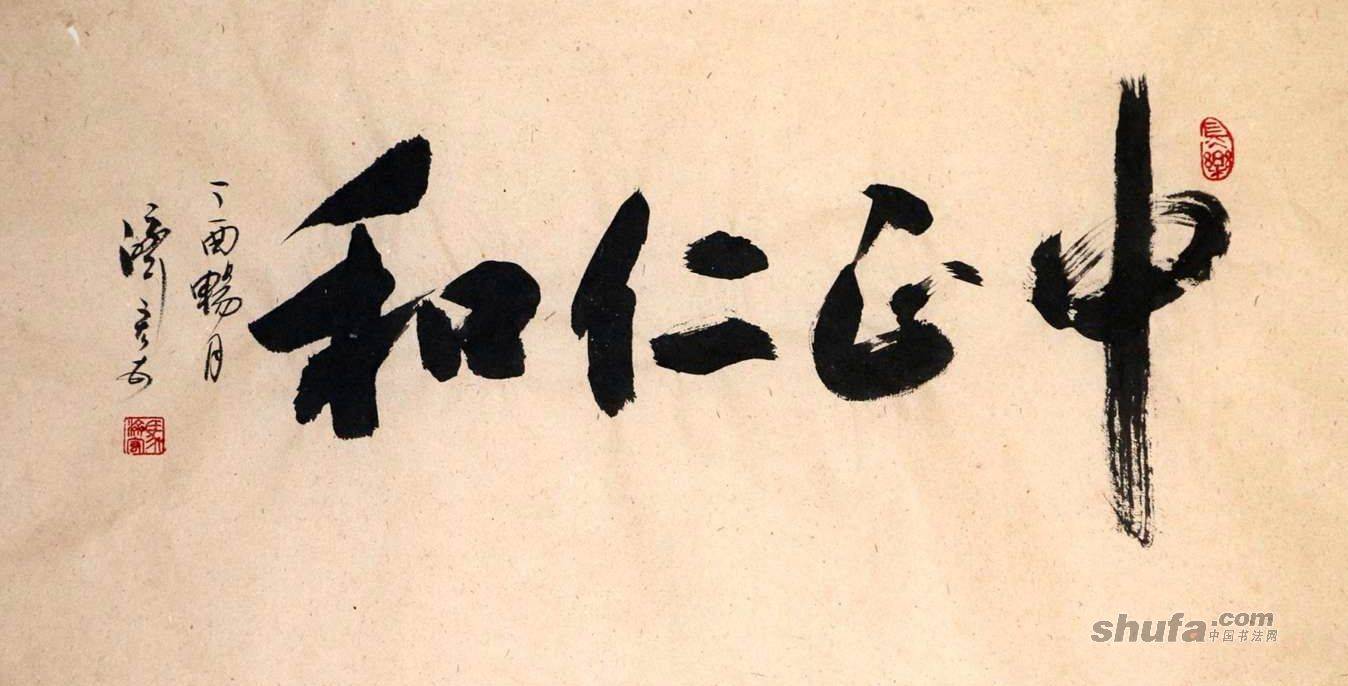 中正仁和
丁酉暢月
濟
長樂
shufa.com
中国书法网